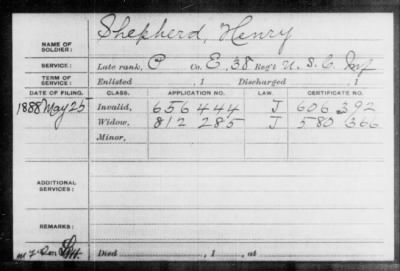 Shepherd, Henry
NAME OF
SOLDIER:
SERVICE: Late rank, P Co. E, 38 Reg't U. S. C. Inf
TERM OF
SERVICE: Enlisted , 1 Discharged , 1
DATE OF FILING. CLASS. APPLICATION NO. LAW. CERTIFICATE NO.
1888 May 25 Invalid, 656 444 J 606 392
Widow, 812 285 J 580 366
Minor,
ADDITIONAL
SERVICES:
REMARKS:
Died , 1 , at